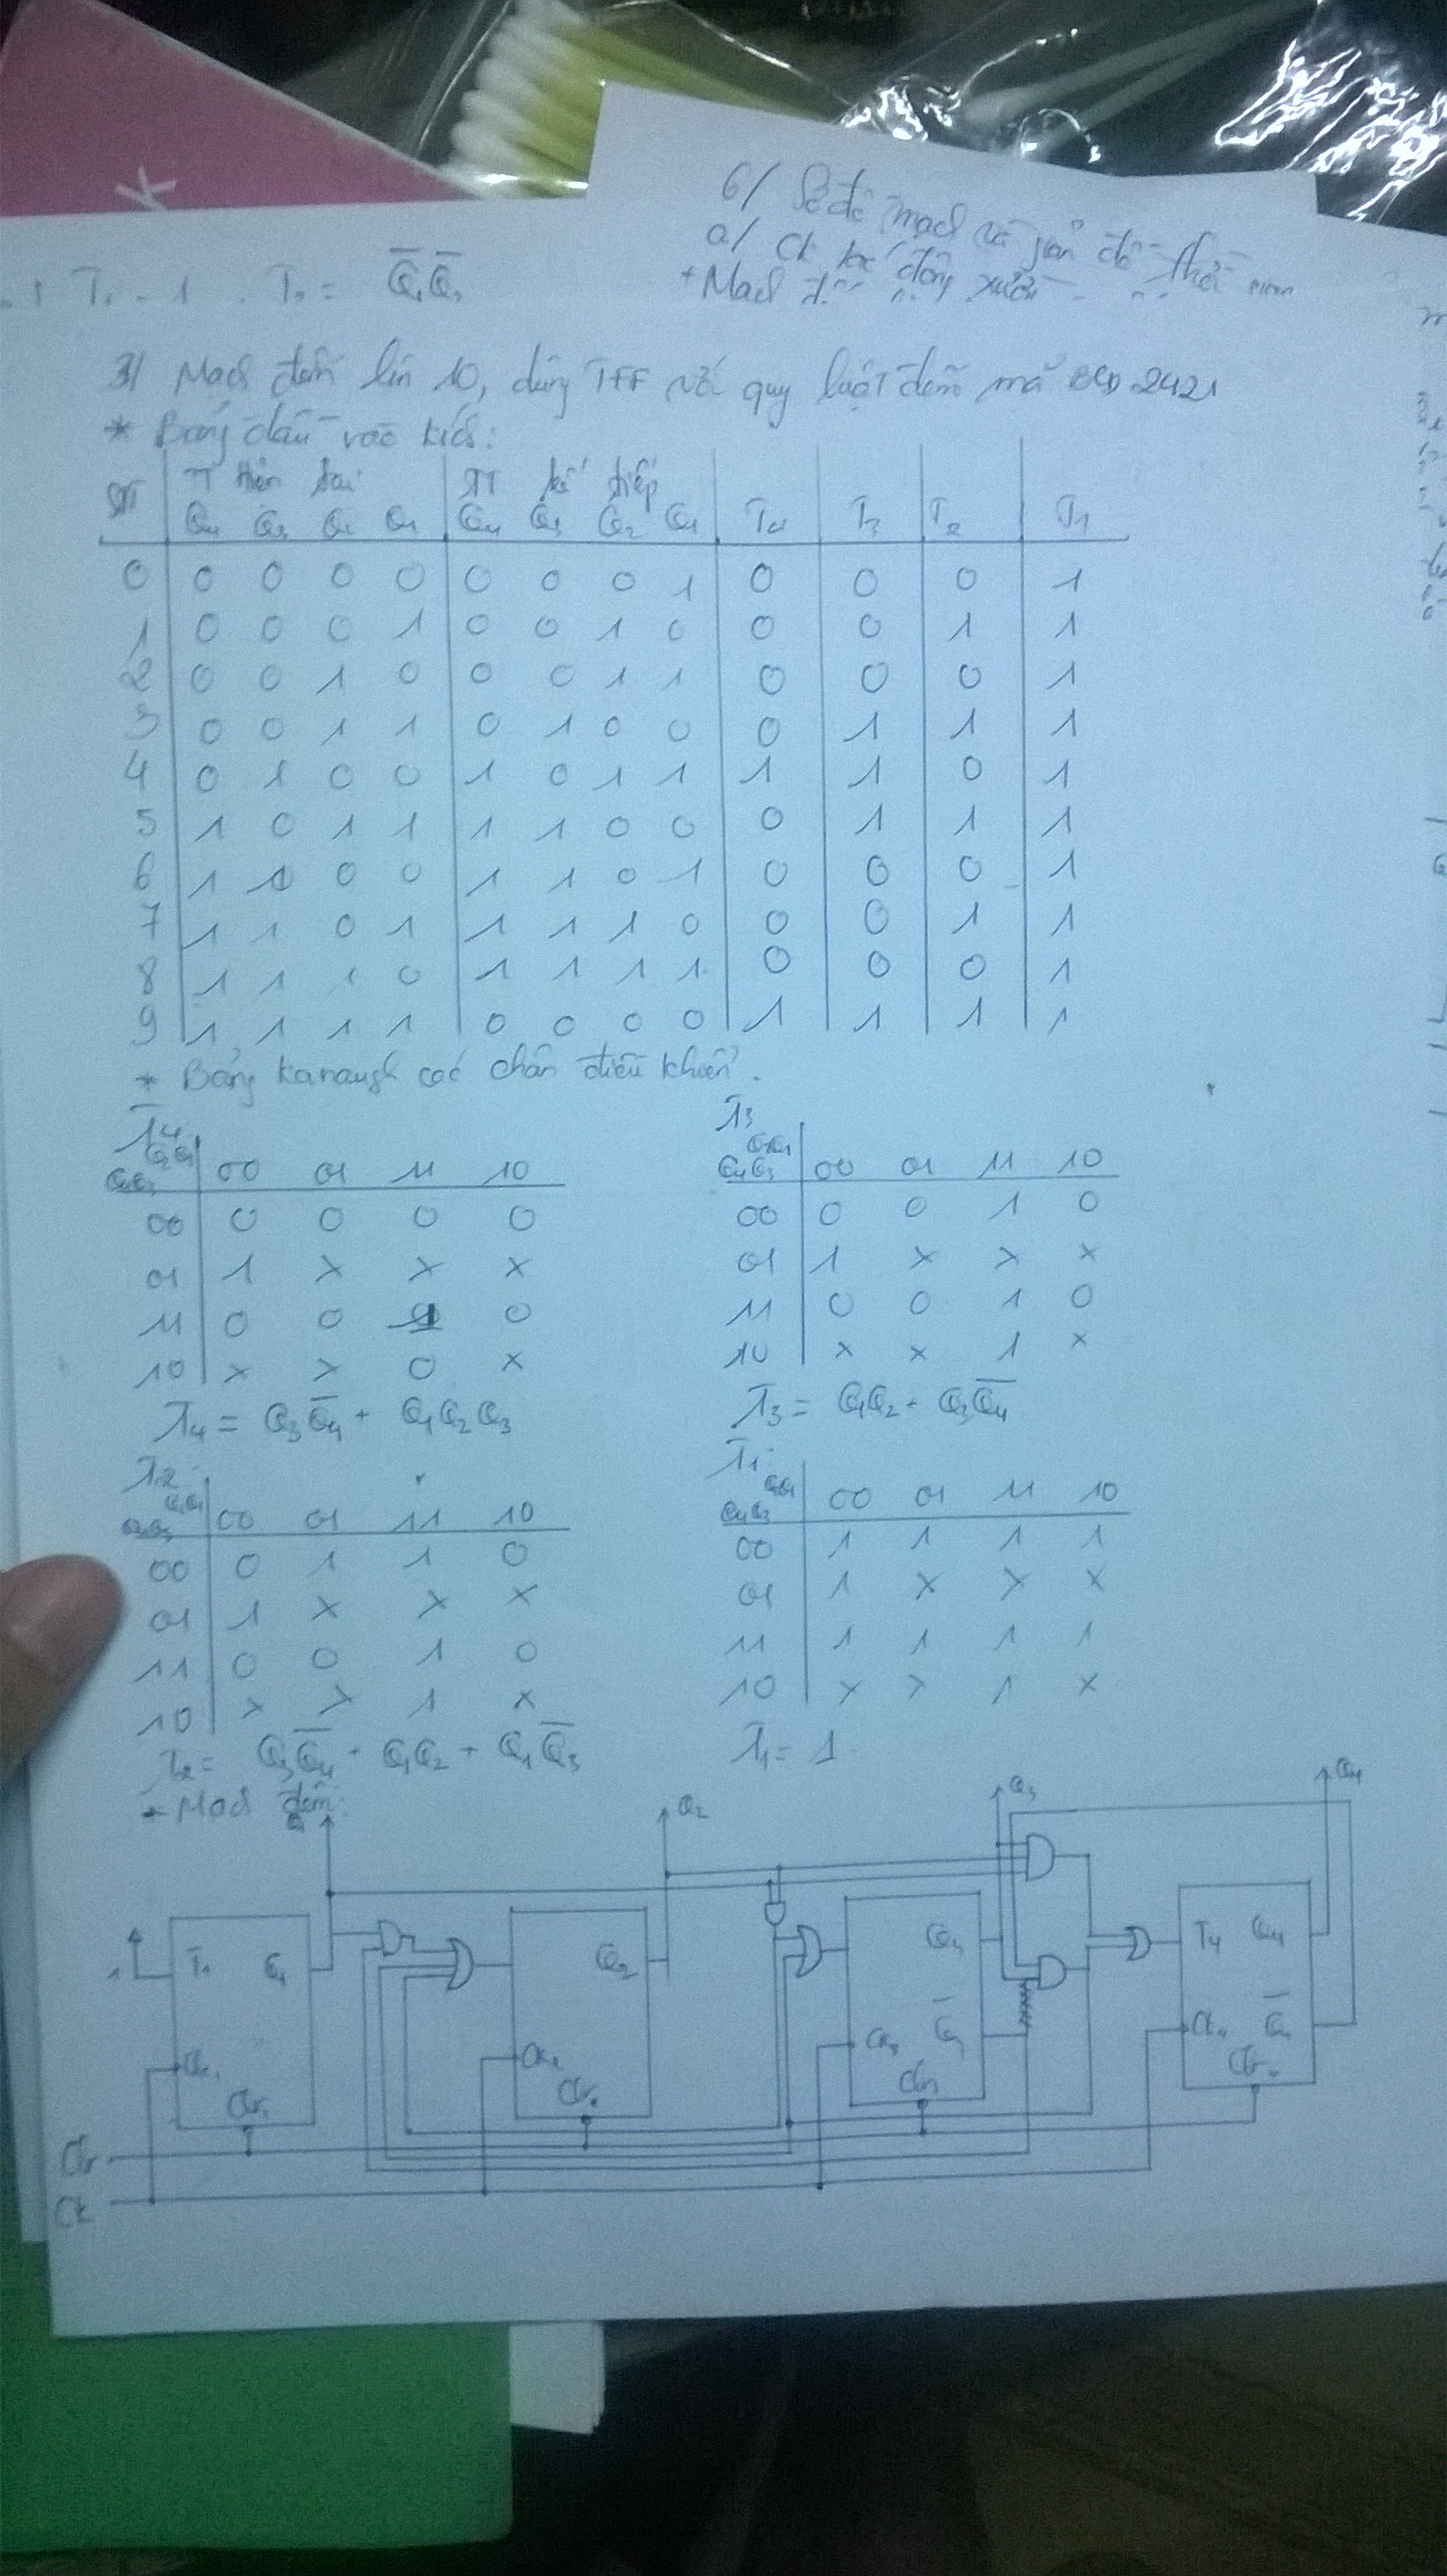 K
6/ Sơ đồ mạch và giản đồ thời gian
a/ Ck tác động xuống
+ Mạch
T₁ = 1 . T₂ = Q̄₁Q̄₃
3/ Mạch đếm lên 10, dùng TFF với quy luật đếm mã BCD 2421
* Bảng đầu vào kích:
TT hiện tại TT kế tiếp
STT Q₄ Q₃ Q₂ Q₁ Q₄ Q₃ Q₂ Q₁ T₄ T₃ T₂ T₁
0 0 0 0 0 0 0 0 1 0 0 0 1
1 0 0 0 1 0 0 1 0 0 0 1 1
2 0 0 1 0 0 0 1 1 0 0 0 1
3 0 0 1 1 0 1 0 0 0 1 1 1
4 0 1 0 0 1 0 1 1 1 1 0 1
5 1 0 1 1 1 1 0 0 0 1 1 1
6 1 1 0 0 1 1 0 1 0 0 0 1
7 1 1 0 1 1 1 1 0 0 0 1 1
8 1 1 1 0 1 1 1 1 0 0 0 1
9 1 1 1 1 0 0 0 0 1 1 1 1
* Bảng kanaugh các chân điều khiển.
T₄
Q₄Q₃ Q₂Q₁ 00 01 11 10
00 0 0 0 0
01 1 x x x
11 0 0 1 0
10 x x 0 x
T₄ = Q₃Q̄₄ + Q₁Q₂Q₃
T₃
Q₄Q₃ Q₂Q₁ 00 01 11 10
00 0 0 1 0
01 1 x x x
11 0 0 1 0
10 x x 1 x
T₃ = Q₁Q₂ + Q₃Q̄₄
T₂
Q₄Q₃ Q₂Q₁ 00 01 11 10
00 0 1 1 0
01 1 x x x
11 0 0 1 0
10 x x 1 x
T₂ = Q₃Q̄₄ + Q₁Q₂ + Q₁Q̄₃
T₁
Q₄Q₃ Q₂Q₁ 00 01 11 10
00 1 1 1 1
01 1 x x x
11 1 1 1 1
10 x x 1 x
T₁ = 1
* Mạch đếm:
Q₁ Q₂ Q₃ Q₄
1 T₁ Q₁ Q₂ Q₃ T₄ Q₄
Ck₁ Ck₂ Ck₃ Q̄₃ Ck₄ Q̄₄
Clr₁ Clr₂ Clr₃ Clr₄
Clr
Ck